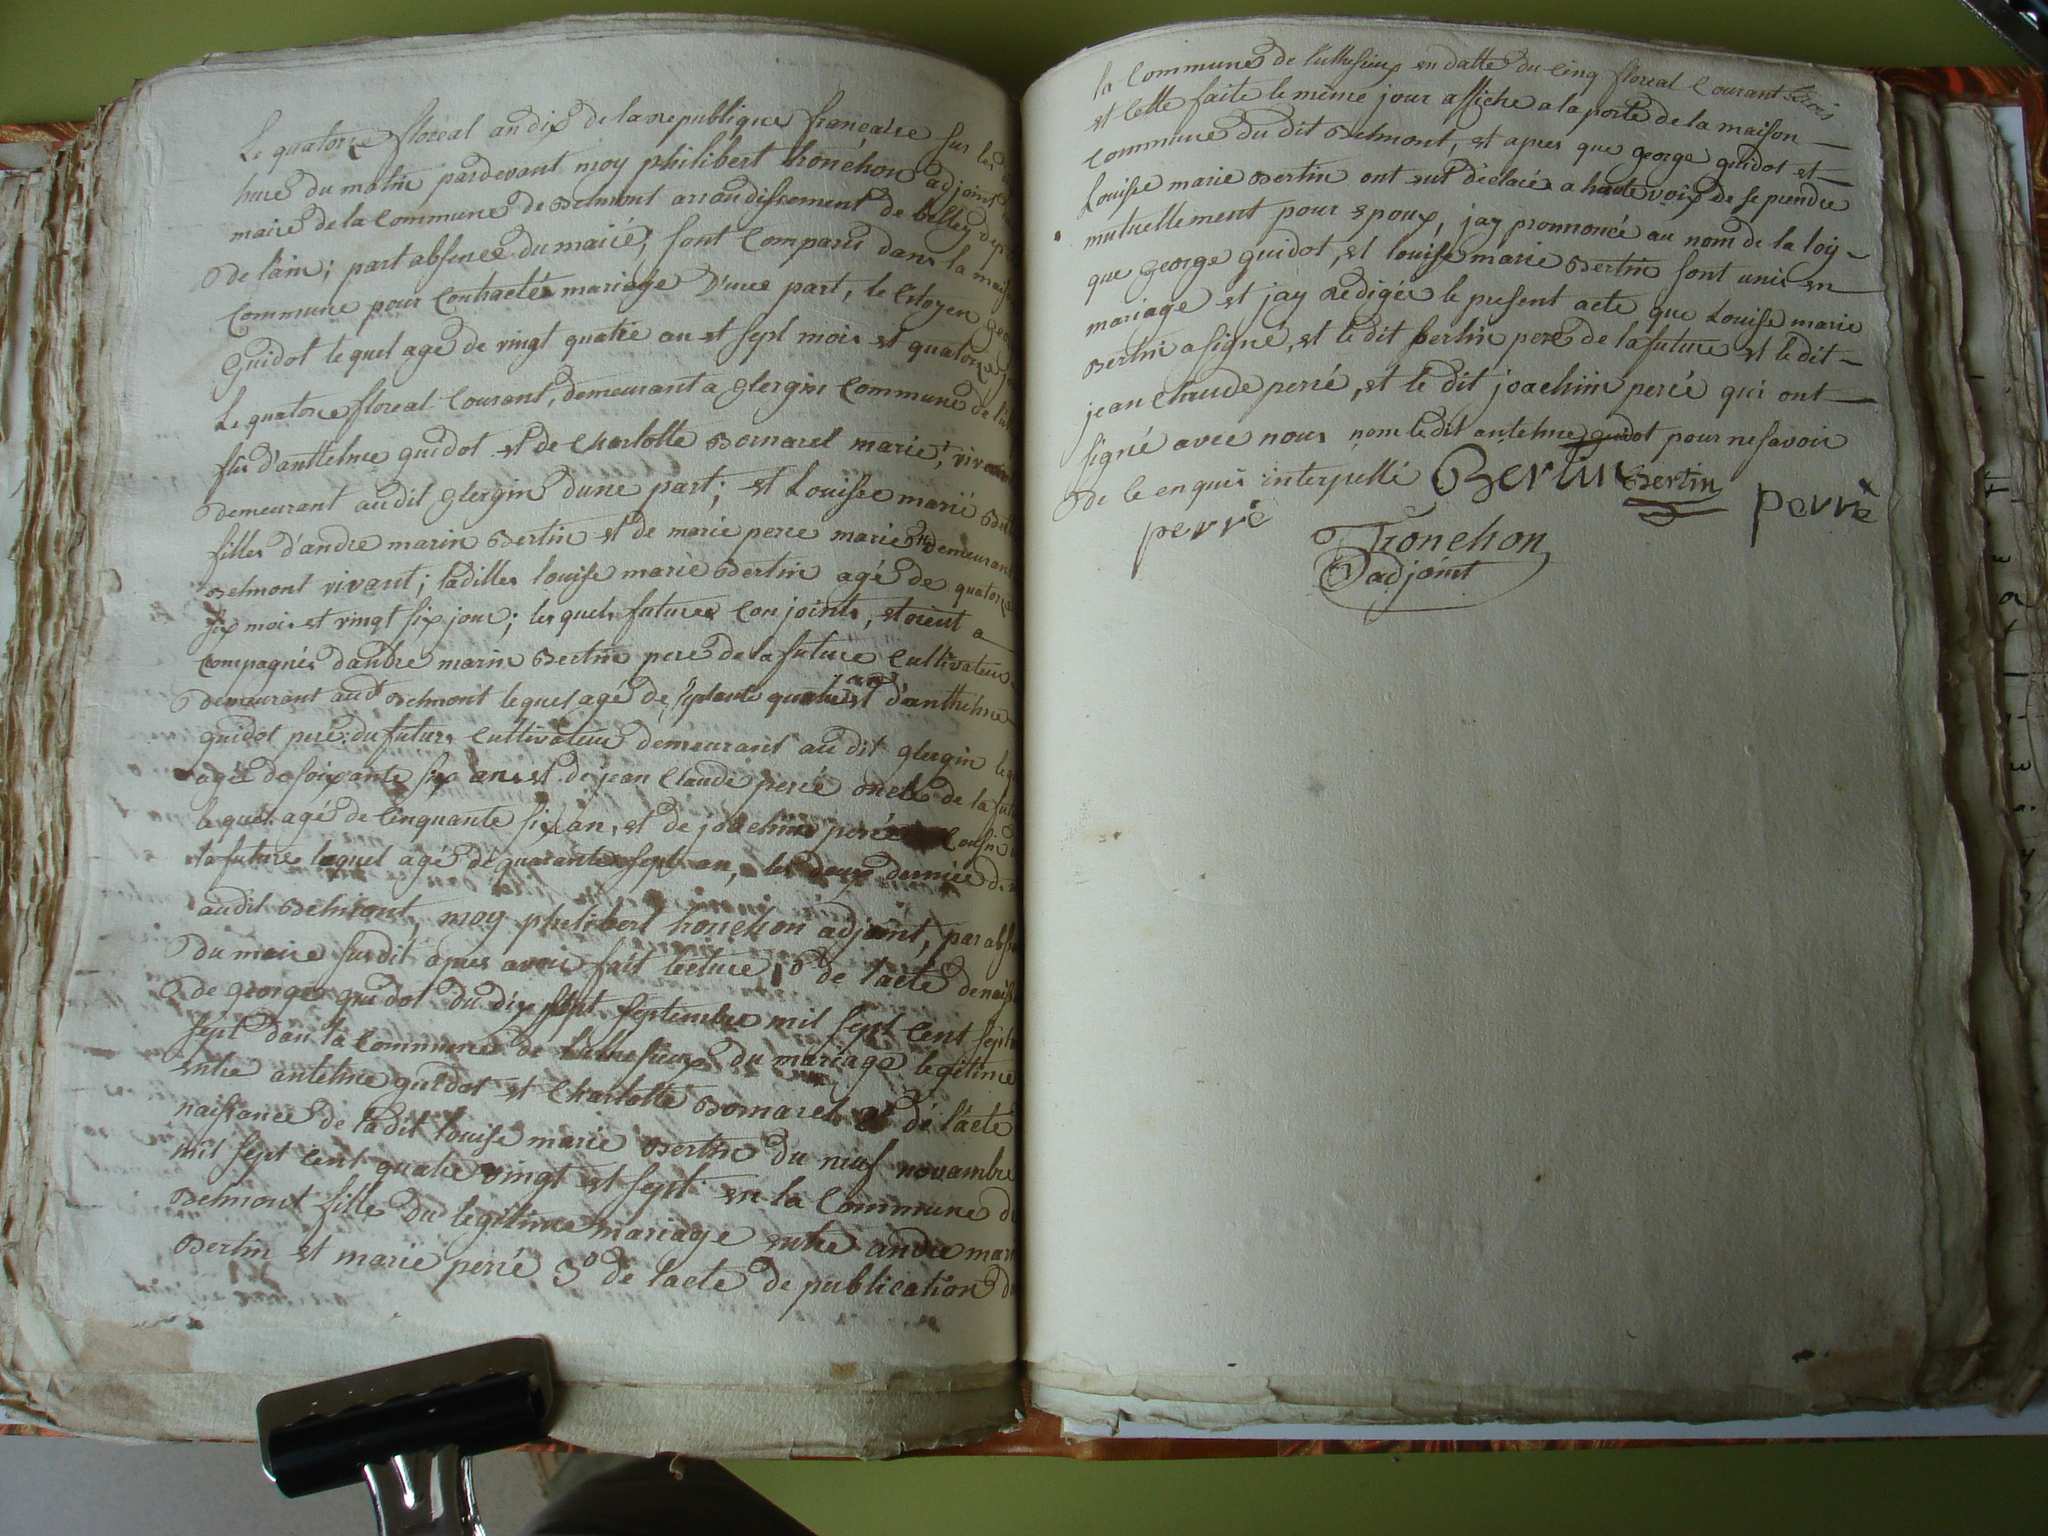 Le quatorze floreal an dix de la republique francaise sur les
hure du matin pardevant moy philibert tronchon adjoint
maire de la commune de Belmont arrondissement de belley dep
de lain; part absence du maire, sont comparu dans la mais
commune pour contracter mariage D'une part, le Citoyen geo
Guidot lequel agé de vingt quatre an et sept mois et quatorze
Le quatorze floreal courant, demeurant a glergin commune de
fils d'anthelme guidot et de Charlotte Bornarel marié, vivant
demeurant audit glergin dune part; et Louise marie Ber
filles d'andre marin Bertin et de marie perre marié demeurant
Belmont vivant; ladittes louise marie Bertin agé de quatorze
six mois et vingt six jour; lesquels futures conjoints, etoient a
compagnés dandre marin Bertin pere de la future Cultivateur
demeurant aud Belmont lequel agé de septante quatre ans et d'anthelme
guidot pere du future Cultivateur demeurant au dit glergin leq
agée de soixante six ans et de jean Claude perré oncle de la fut
lequel agé de Cinquante six an, et de joachim perré Cousin
la future lequel agé de quarante sept an, les deux dernier de
audit Belmont, moy philibert tronchon adjoint, par abs
du maire susdit apres avoir fait lecture, 1° de lacte de nais
de george guidot du dix sept septembre mil sept cent sept
sept dan la Commune de luthesieux du mariage legitime
entre antelme guidot et Charlotte Bornarel 2° de lacte
naissance de ladit louise marie Bertin du neuf novambre
mil sept cent quatre vingt et sept en la Commune de
Belmont fille du legitime mariage entre andre mar
Bertin et marie perré 3° de lacte de publication d
la commune de luthesieux en datte du cinq floreal courant trois
et cette faite le même jour affiche a la porte de la maison
commune du dit Belmont, et apres que george guidot et
Louise marie Bertin ont eut déclaré a haute voix de se prendre
mutuellement pour epoux, jay pronnoncé au nom de la loix
que george guidot, et louise marie Bertin sont unis en
mariage et jay redigée le present acte que Louise marie
Bertin a signé, et le dit Bertin pere de la future et le dit
jean Claude perré, et le dit joachim perré qui ont
signé avec nous nom le dit antelme guidot pour ne savoir
de le enquis interpellé Bertin Bertin perré
perré
Tronchon
adjoint